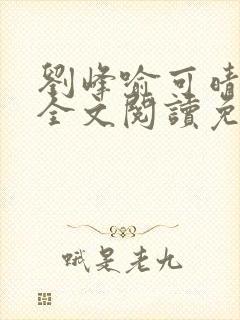 劉峰喻可晴
全文閱讀免
哦是老九